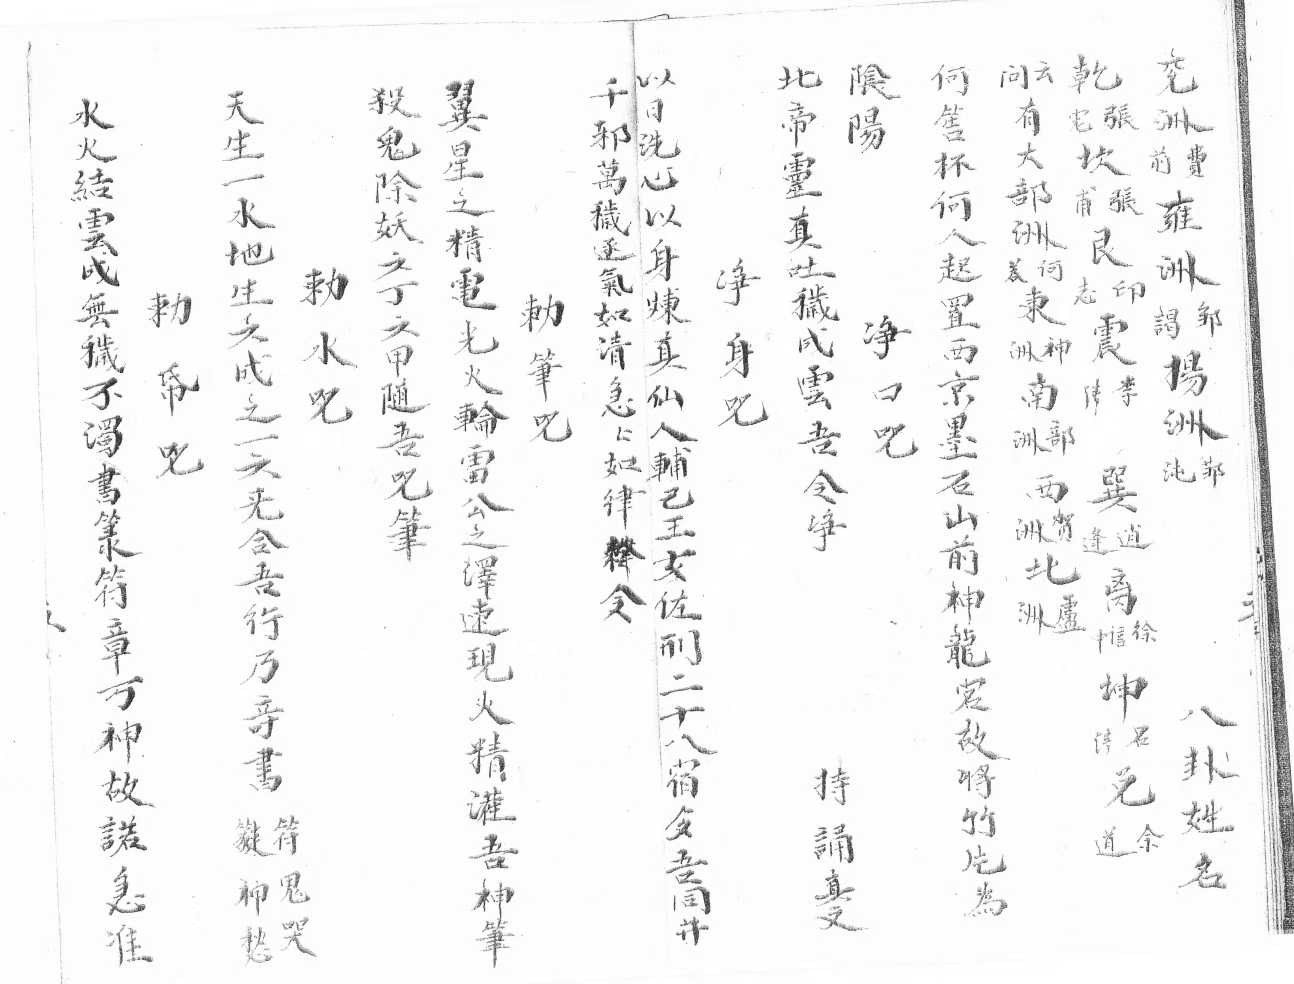 兗洲費前雍洲鄒謁揚洲鄒沌
八卦姓名
乾張宅坎張甫艮印志震李濤巽逍逢離徐信中坤呂清兌余道
云問有大部洲何羨東神洲南部洲西賀洲北盧洲
何筶杯何人起置西京墨石山前神龍窖故將竹片為
陰陽
淨口咒
持誦真文
北帝靈真吐穢成雲吾令淨
淨身咒
以日洗心以身煉真仙人輔己玉女佐刑二十八宿及吾同并
千邪萬穢逐氣如清急上如律令
勅筆咒
翼星之精電光火輪雷公之澤速現火精灌吾神筆
殺鬼除妖之丁之甲隨吾咒筆
勅水咒
天生一水地生之成之一六光含吾行乃奇書符鬼哭神愁
勅帋咒
水火結雲成無穢不濁書篆符章萬神故諾急准